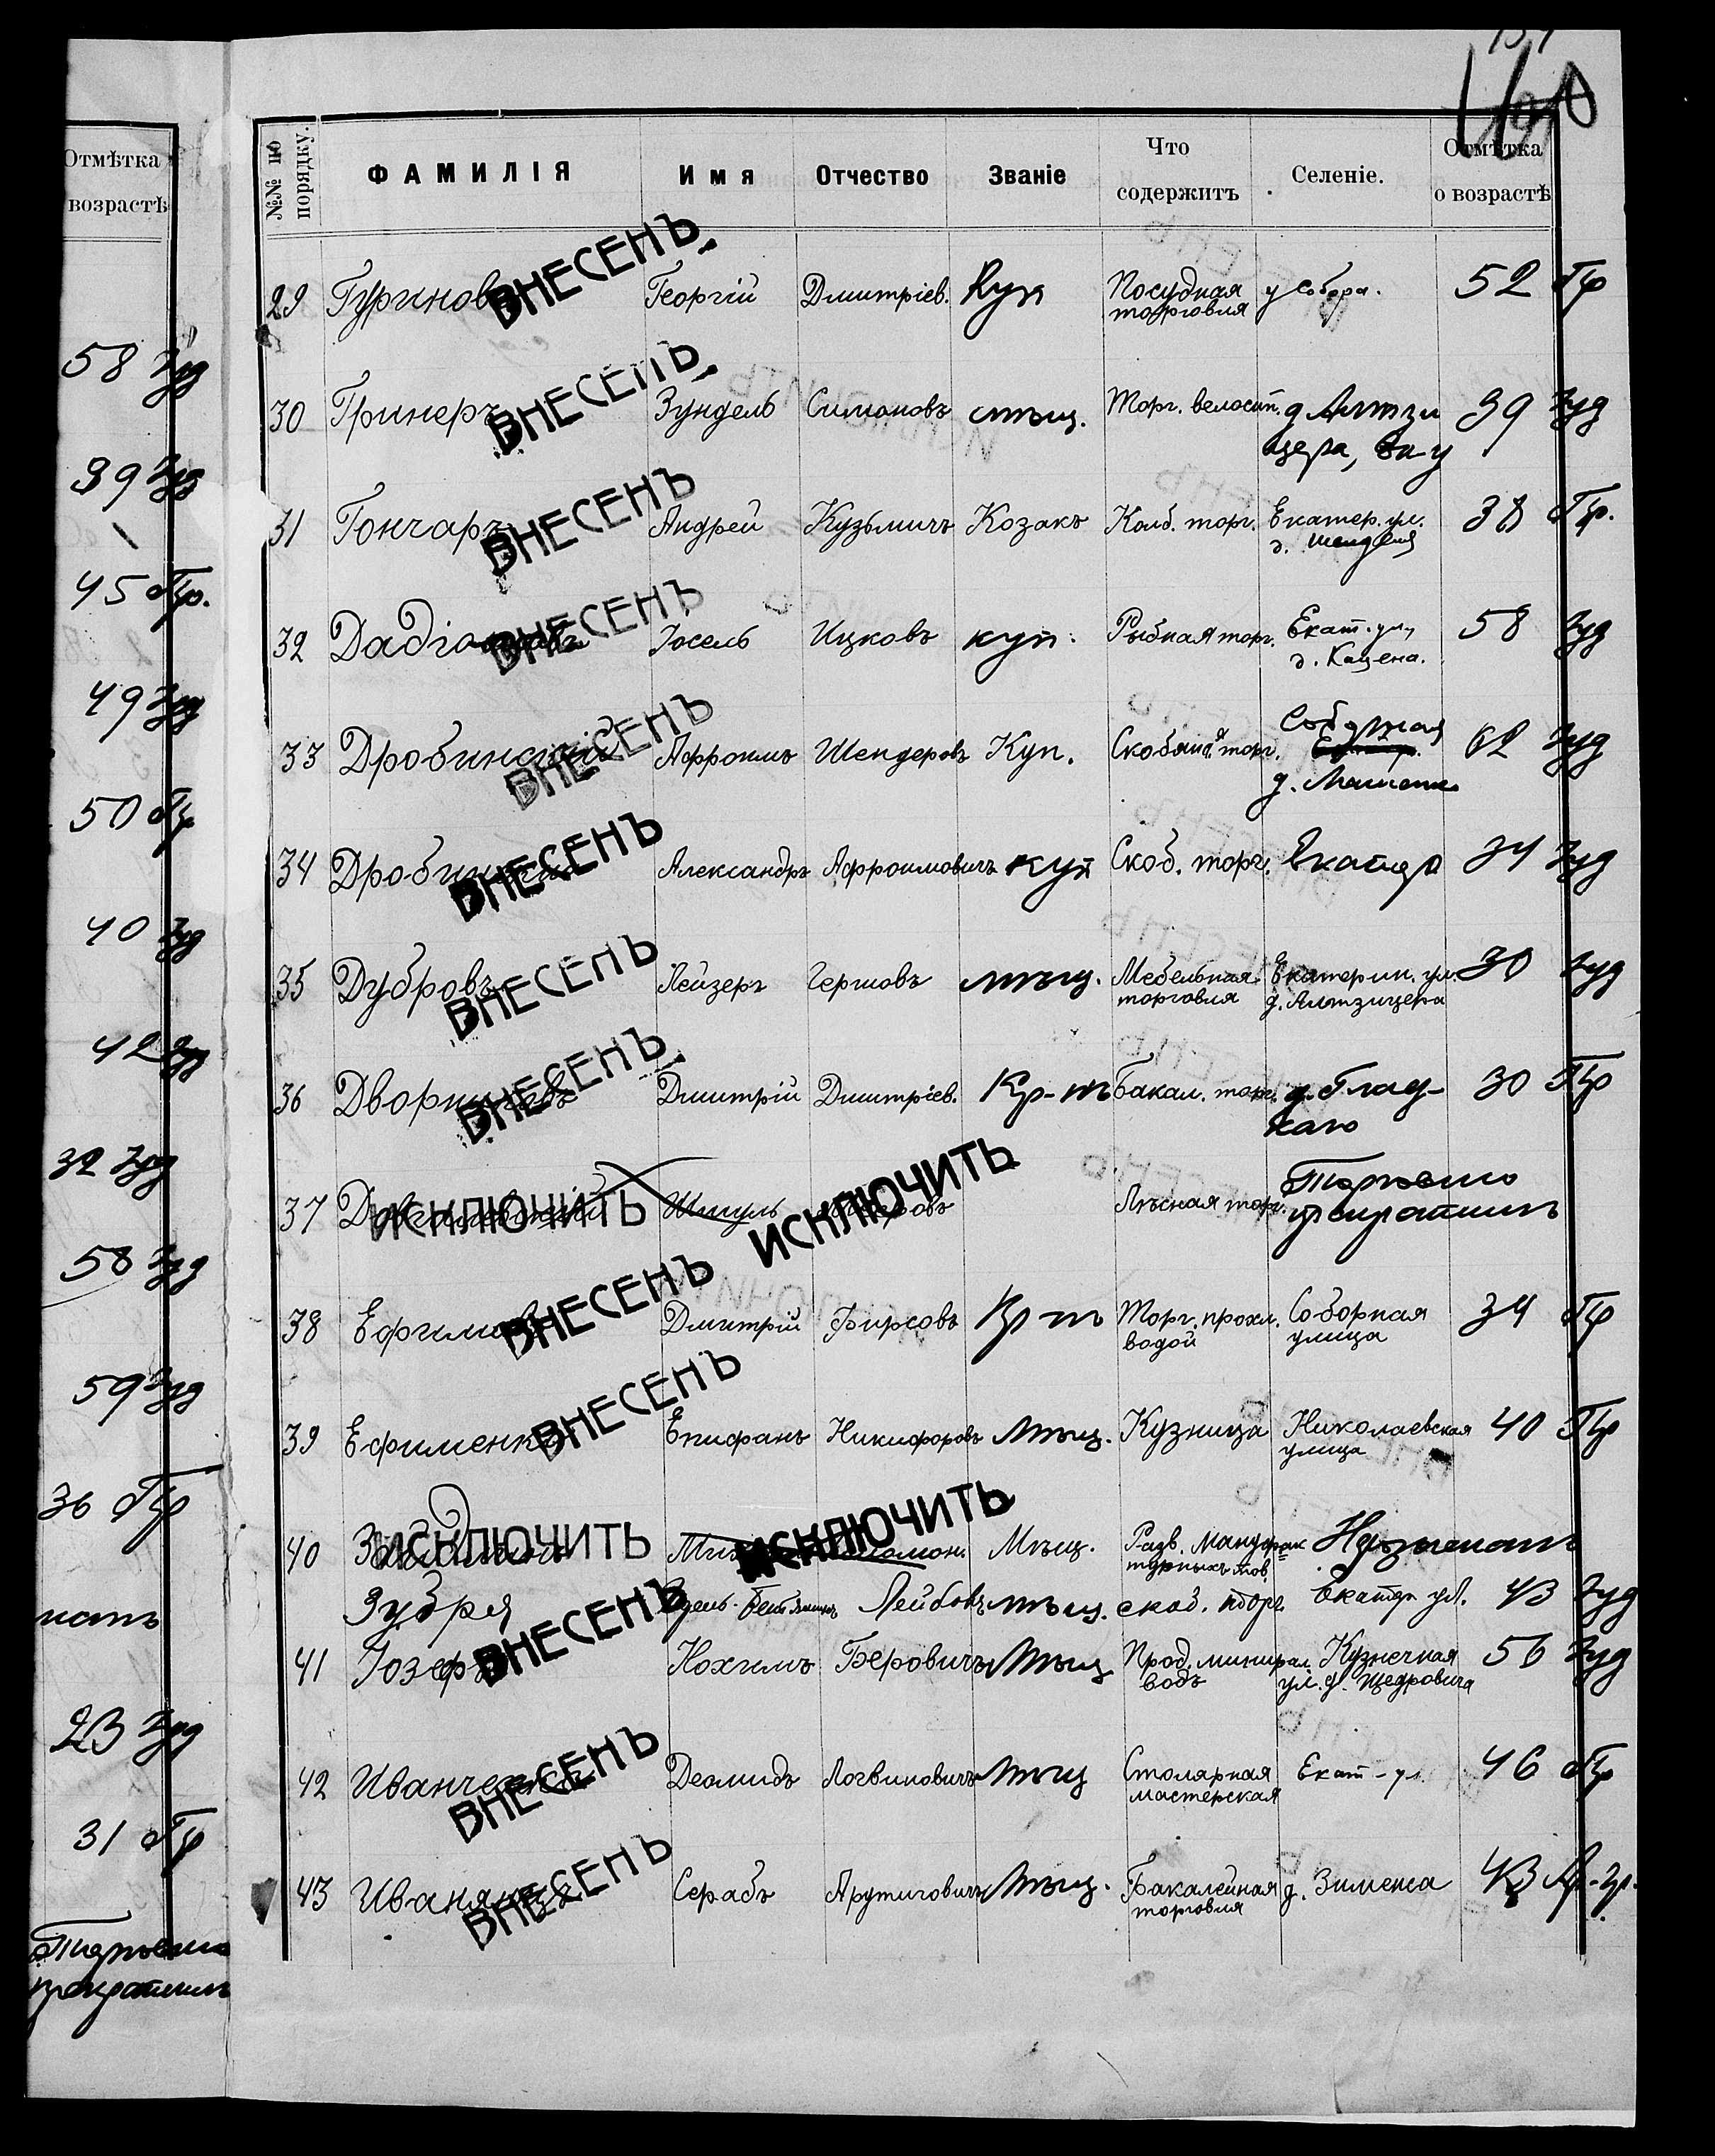 Отмѣтка
возрастѣ
58 Іуд
39 Іуд
45 Пр.
49 Іуд
50 Пр
40 Іуд
42 Іуд
32 Іуд
58 Іуд
59 Іуд
36 Пр
23 Іуд
31 Пр
Торговлю
прекратилъ
160
№№ по порядку.
ФАМИЛІЯ
Имя
Отчество
Званіе
Что содержитъ
Селеніе.
Отмѣтка о возрастѣ
29 Гуриновъ ВНЕСЕНЪ. Георгій Дмитріев. Куп Посудная торговля у Собора. 52 Пр
30 Гринеръ ВНЕСЕНЪ. Зундель Симоновъ мѣщ. Торг. велосип. д Алтзицера, 39 Іуд
31 Гончаръ ВНЕСЕНЪ Андрей Кузьмичъ Козакъ Колб. торг. Екатер. ул. д. 38 Пр.
32 ВНЕСЕНЪ Іосель Ицковъ куп. Рыбная торг. Екат. ул, д. Кацена. 58 Іуд
33 Дробинскій ВНЕСЕНЪ Афроимъ Шендеровъ Куп. Скобяная торг. Соборная д. 62 Іуд
34 Дробинскій ВНЕСЕНЪ Александръ Афроимовичъ куп Скоб. торг. Екатер 34 Іуд
35 Дубровъ ВНЕСЕНЪ Лейзеръ Гершовъ мѣщ. Мебельная торговля Екатерин. ул. д. Алтзицера 30 Іуд
36 Дворниковъ ВНЕСЕНЪ. Дмитрій Дмитріев. Кр-нъ Бакал. торг. д. Гладкаго 30 Пр
37 ИСКЛЮЧИТЬ Шмуль ИСКЛЮЧИТЬ Лѣсная торг. Торговлю прекратилъ
38 Ефимовъ ВНЕСЕНЪ Дмитрій Фирсовъ Кр-нъ Торг. прохл. водой Соборная улица 34 Пр
39 Ефименко ВНЕСЕНЪ Епифанъ Никифоровъ Мѣщ. Кузница Николаевская улица 40 Пр
40 ИСКЛЮЧИТЬ ИСКЛЮЧИТЬ Мѣщ. Разв. мануфактурныхъ тов.
Зубря Лейбовъ мѣщ. скоб. торг. Екатер ул. 43 Іуд
41 Іозефъ ВНЕСЕНЪ Нохимъ Беровичъ Мѣщ Прод. минерал. водъ Кузнечная ул. д. Щедровича 56 Іуд
42 Иванченко ВНЕСЕНЪ Деомидъ Логвиновичъ Мѣщ Столярная мастерская Екат-ул. 46 Пр
43 Иванянцъ ВНЕСЕНЪ Серабъ Арутиновичъ Мѣщ. Бакалейная торговля д. Зимена 43 Ар-гр.